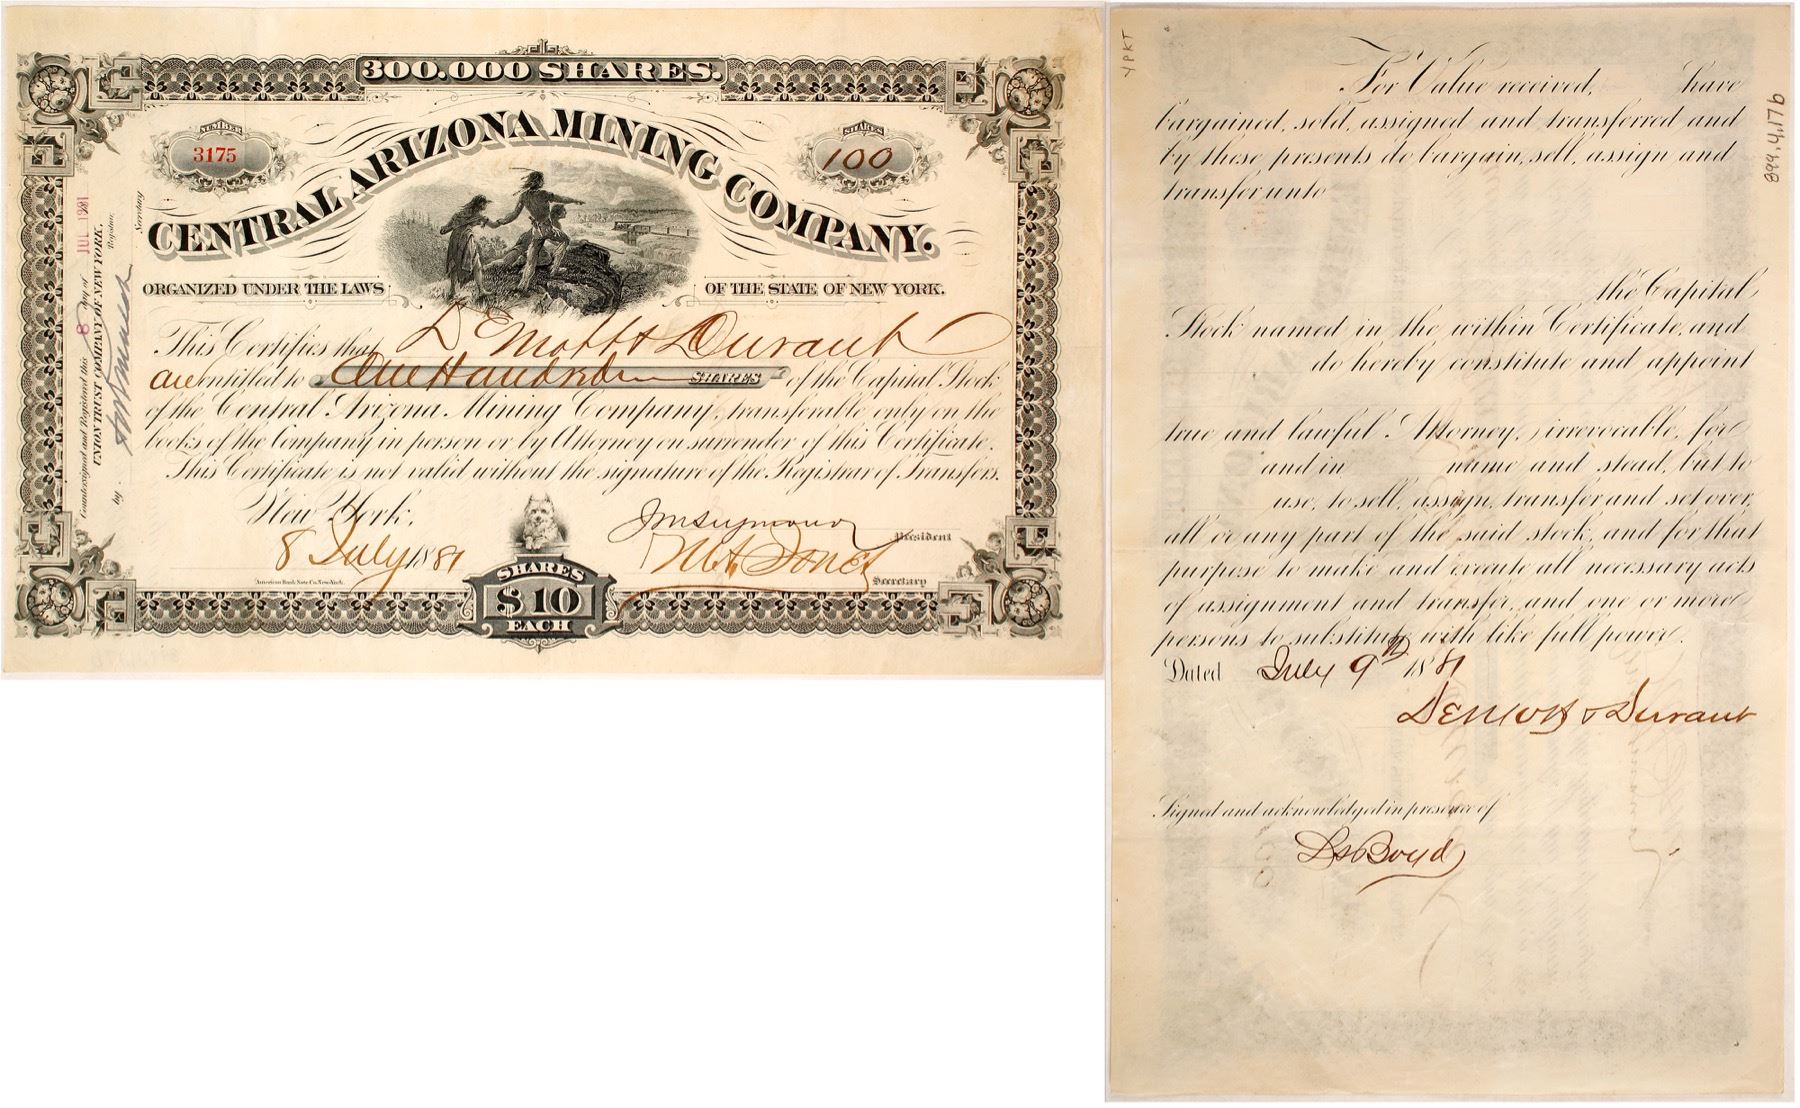 300.000 SHARES.
NUMBER
3175
SHARES
100
CENTRAL ARIZONA MINING COMPANY.
ORGANIZED UNDER THE LAWS OF THE STATE OF NEW YORK.
This Certifies that DEmott & Durant
are entitled to One Hundred SHARES of the Capital Stock
of the Central Arizona Mining Company, transferable only on the
books of the Company in person or by Attorney on surrender of this Certificate.
This Certificate is not valid without the signature of the Registrar of Transfers.
New York,
8 July 1881
President
Secretary
American Bank Note Co. New York.
SHARES
$10
EACH
Countersigned and Registered this 8 Day of JUL 1881
UNION TRUST COMPANY OF NEW YORK,
Registrar,
by
Secretary
YPKT
899.4.176
For Value received, have
bargained, sold, assigned and transferred and
by these presents do bargain, sell, assign and
transfer unto
the Capital
Stock named in the within Certificate, and
do hereby constitute and appoint
true and lawful Attorney, irrevocable, for
and in name and stead, but to
use, to sell, assign, transfer and set over,
all or any part of the said stock, and for that
purpose to make and execute all necessary acts
of assignment and transfer, and one or more
persons to substitute with like full power.
Dated July 9th 1881
DEmott & Durant
Signed and acknowledged in presence of
Boyd